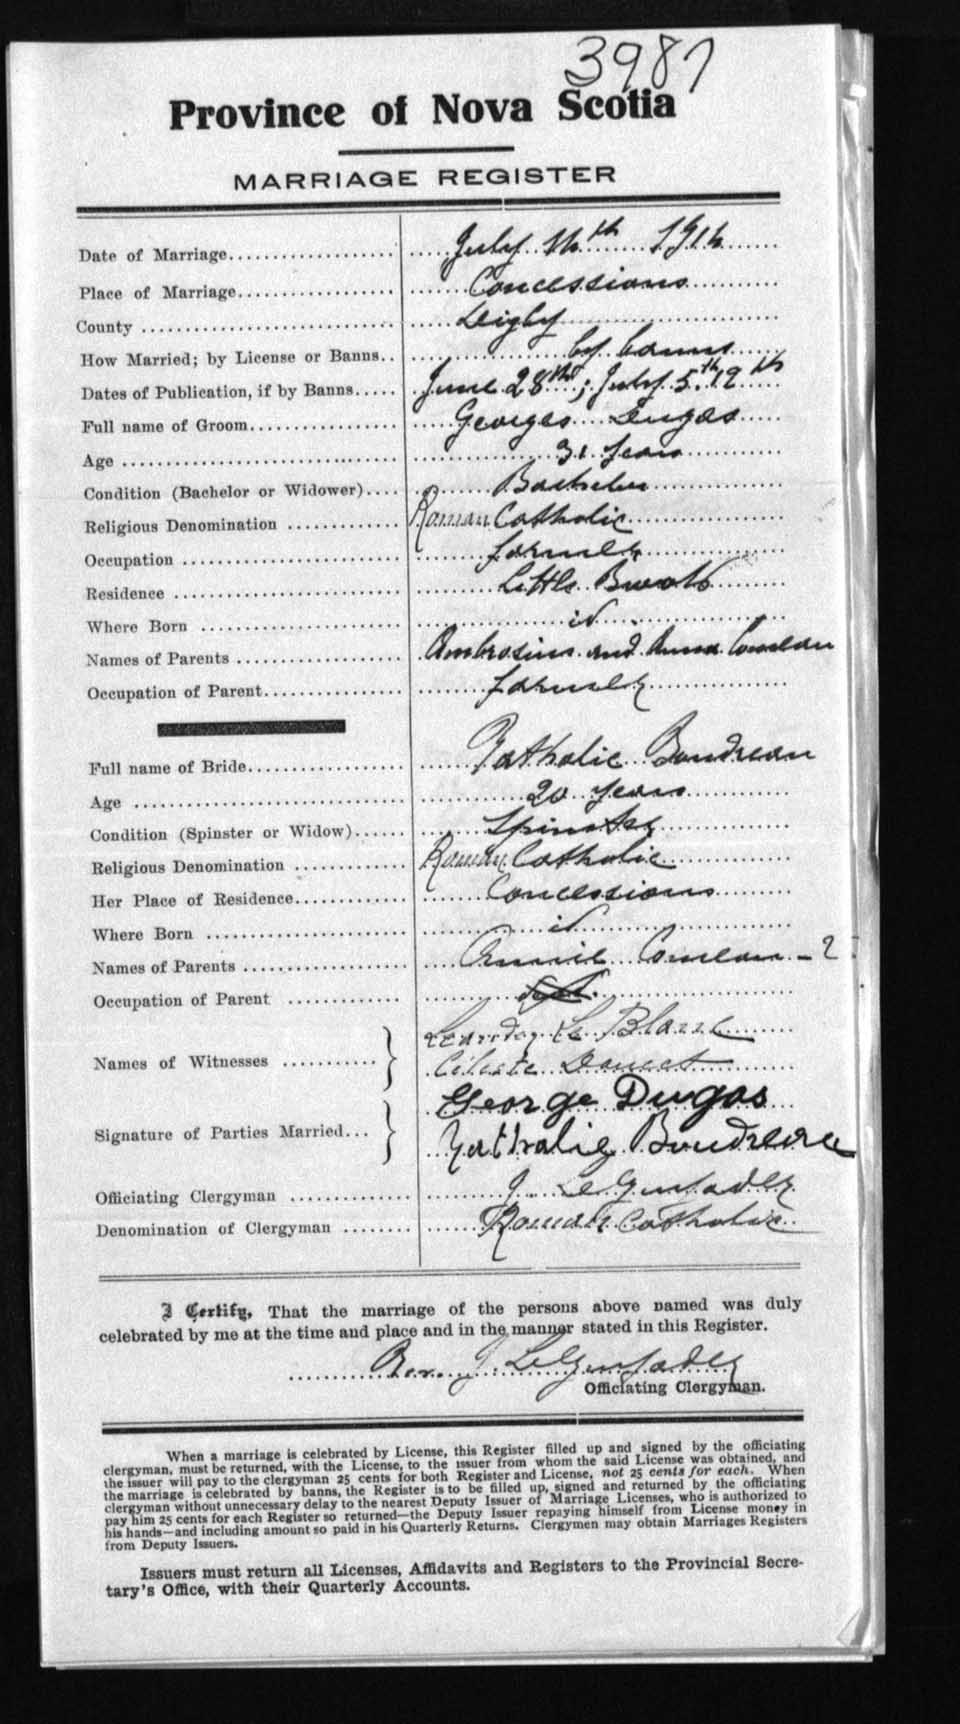 3987
Province of Nova Scotia
MARRIAGE REGISTER
Date of Marriage July th
Place of Marriage Concessions
County Digby
How Married; by License or Banns by banns
Dates of Publication, if by Banns June 28th; July 5th 12th
Full name of Groom Georges Dugas
Age 31 years
Condition (Bachelor or Widower) Bachelor
Religious Denomination Roman Catholic
Occupation farmer
Residence Little Brook
Where Born id
Names of Parents and Anna Comeau
Occupation of Parent farmer
Full name of Bride Nathalie Boudreau
Age 20 years
Condition (Spinster or Widow) Spinster
Religious Denomination Roman Catholic
Her Place of Residence Concessions
Where Born id
Names of Parents Annie Comeau - ?
Occupation of Parent
Names of Witnesses Le Blanc
Celeste Doucet
Signature of Parties Married George Dugas
Nathalie Boudreau
Officiating Clergyman J.
Denomination of Clergyman Roman Catholic
I Certify, That the marriage of the persons above named was duly
celebrated by me at the time and place and in the manner stated in this Register.
Rev. J.
Officiating Clergyman.
When a marriage is celebrated by License, this Register filled up and signed by the officiating
clergyman, must be returned, with the License, to the issuer from whom the said License was obtained, and
the issuer will pay to the clergyman 25 cents for both Register and License, not 25 cents for each. When
the marriage is celebrated by banns, the Register is to be filled up, signed and returned by the officiating
clergyman without unnecessary delay to the nearest Deputy Issuer of Marriage Licenses, who is authorized to
pay him 25 cents for each Register so returned—the Deputy Issuer repaying himself from License money in
his hands—and including amount so paid in his Quarterly Returns. Clergymen may obtain Marriages Registers
from Deputy Issuers.
Issuers must return all Licenses, Affidavits and Registers to the Provincial Secre-
tary's Office, with their Quarterly Accounts.